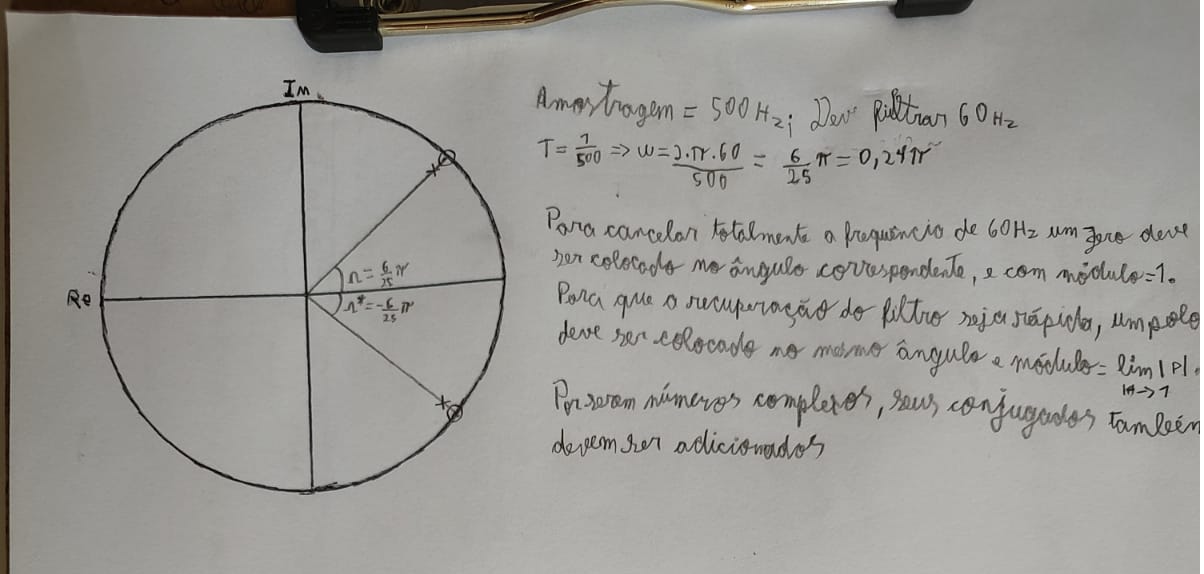 Im
Re
n = 6/25 π
n* = -6/25 π
Amostragem = 500Hz; Deve filtrar 60Hz
T = 1/500 => w = 2.π.60/500 = 6/25 π = 0,24π
Para cancelar totalmente a frequência de 60Hz um zero deve
ser colocado no ângulo correspondente, e com módulo=1.
Para que a recuperação do filtro seja rápida, um polo
deve ser colocado no mesmo ângulo e módulo= lim |P|.
|P|->1
Por serem números complexos, seus conjugados também
devem ser adicionados